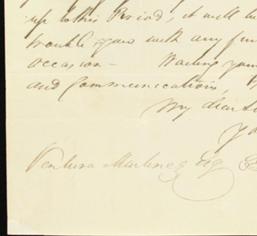 up to this Period, it will be
trouble you with any fur
occasion — Waiting your
and Communications,
My dear Si
Yo
Ventura Martinez Esq